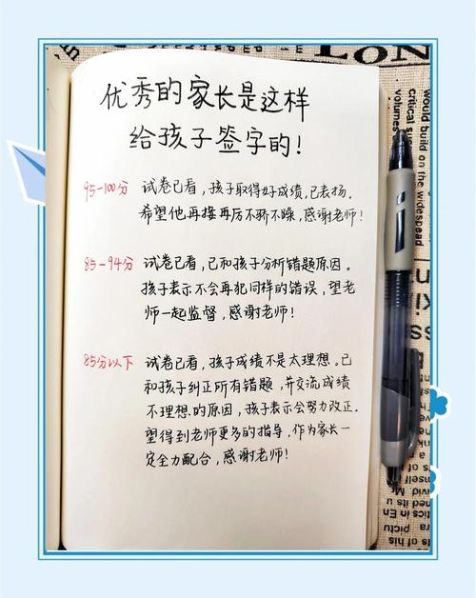 优秀的家长是这样
给孩子签字的!
95-100分 试卷已看,孩子取得好成绩,已表扬.
希望他再接再厉不骄不躁,感谢老师!
85-94分 试卷已看,已和孩子分析错题原因.
孩子表示不会再犯同样的错误,望老
师一起监督,感谢老师!
85分以下 试卷已看,孩子成绩不是太理想.已
和孩子纠正所有错题,并交流成绩
不理想的原因,孩子表示会努力改正.
望得到老师更多的指导,作为家长一
定全力配合,感谢老师!
LON
would build on the widespread
critical
volumes